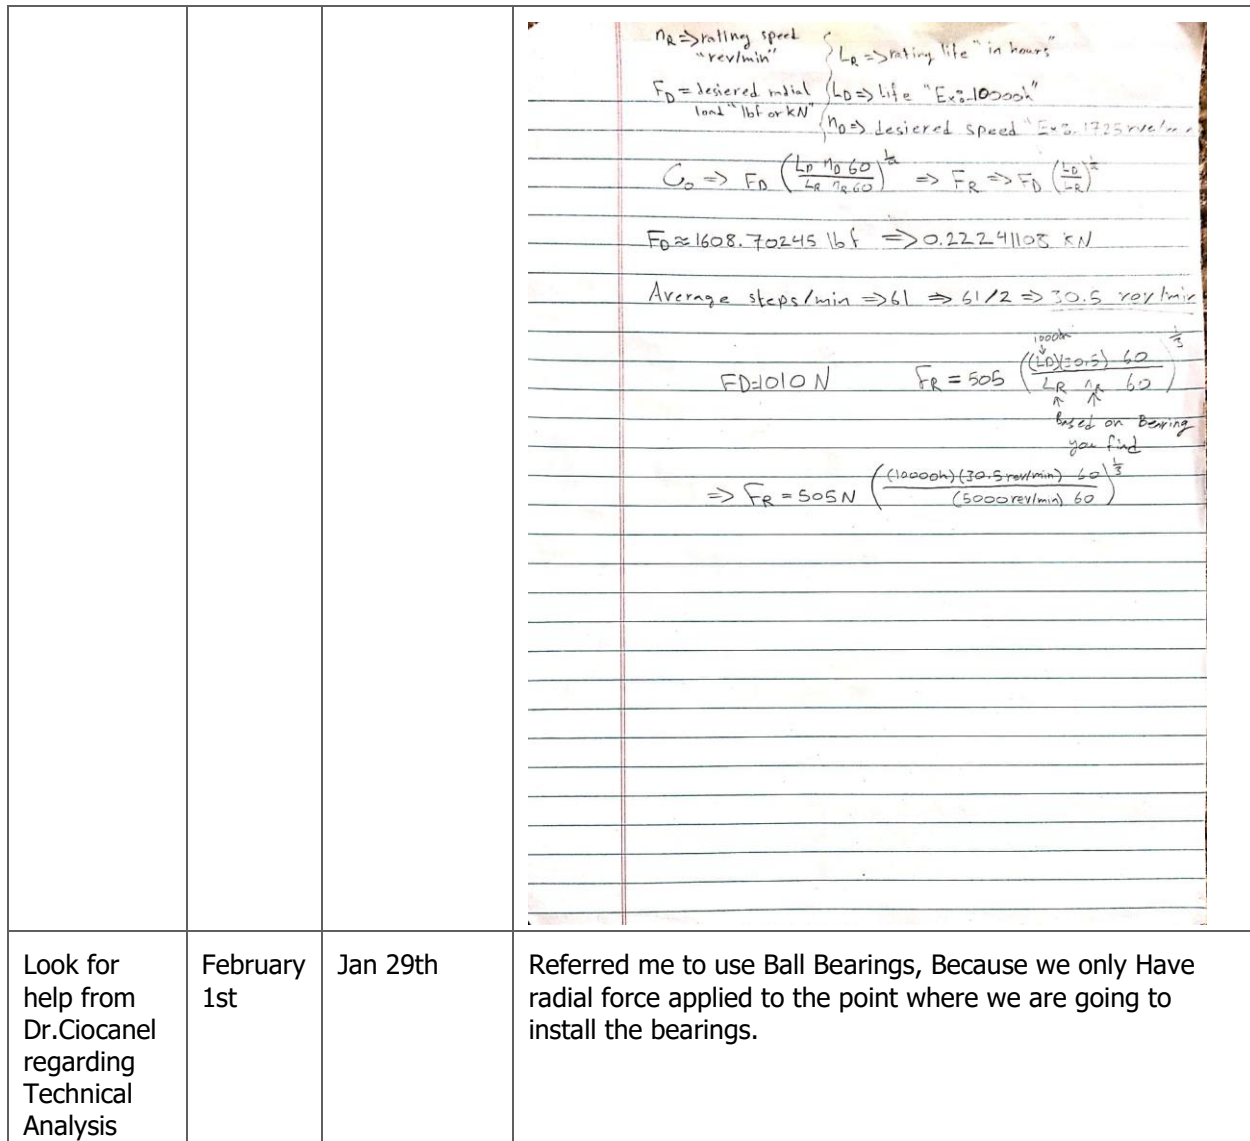 nR => rating speed
"rev/min"
LR => rating life "in hours"
FD = desiered radial
load "lbf or kN"
LD => Life "Ex:. 10000h"
nD => desiered speed "Ex:. 1725 rve/m
C₀ => FD (LD nD 60 / LR nR 60)^1/a => FR => FD (LD/LR)^1/a
FD ≈ 1608.70245 lbf => 0.22241108 kN
Average steps/min => 61 => 61/2 => 30.5 rev/min
FD=1010 N FR = 505 ((LD)(30.5) 60 / LR nR 60)^1/3
10000h
Based on Bearing
you find
=> FR = 505N ((10000h)(30.5 rev/min) 60 / (5000 rev/min) 60)^1/3
Look for
help from
Dr.Ciocanel
regarding
Technical
Analysis
February
1st
Jan 29th
Referred me to use Ball Bearings, Because we only Have
radial force applied to the point where we are going to
install the bearings.